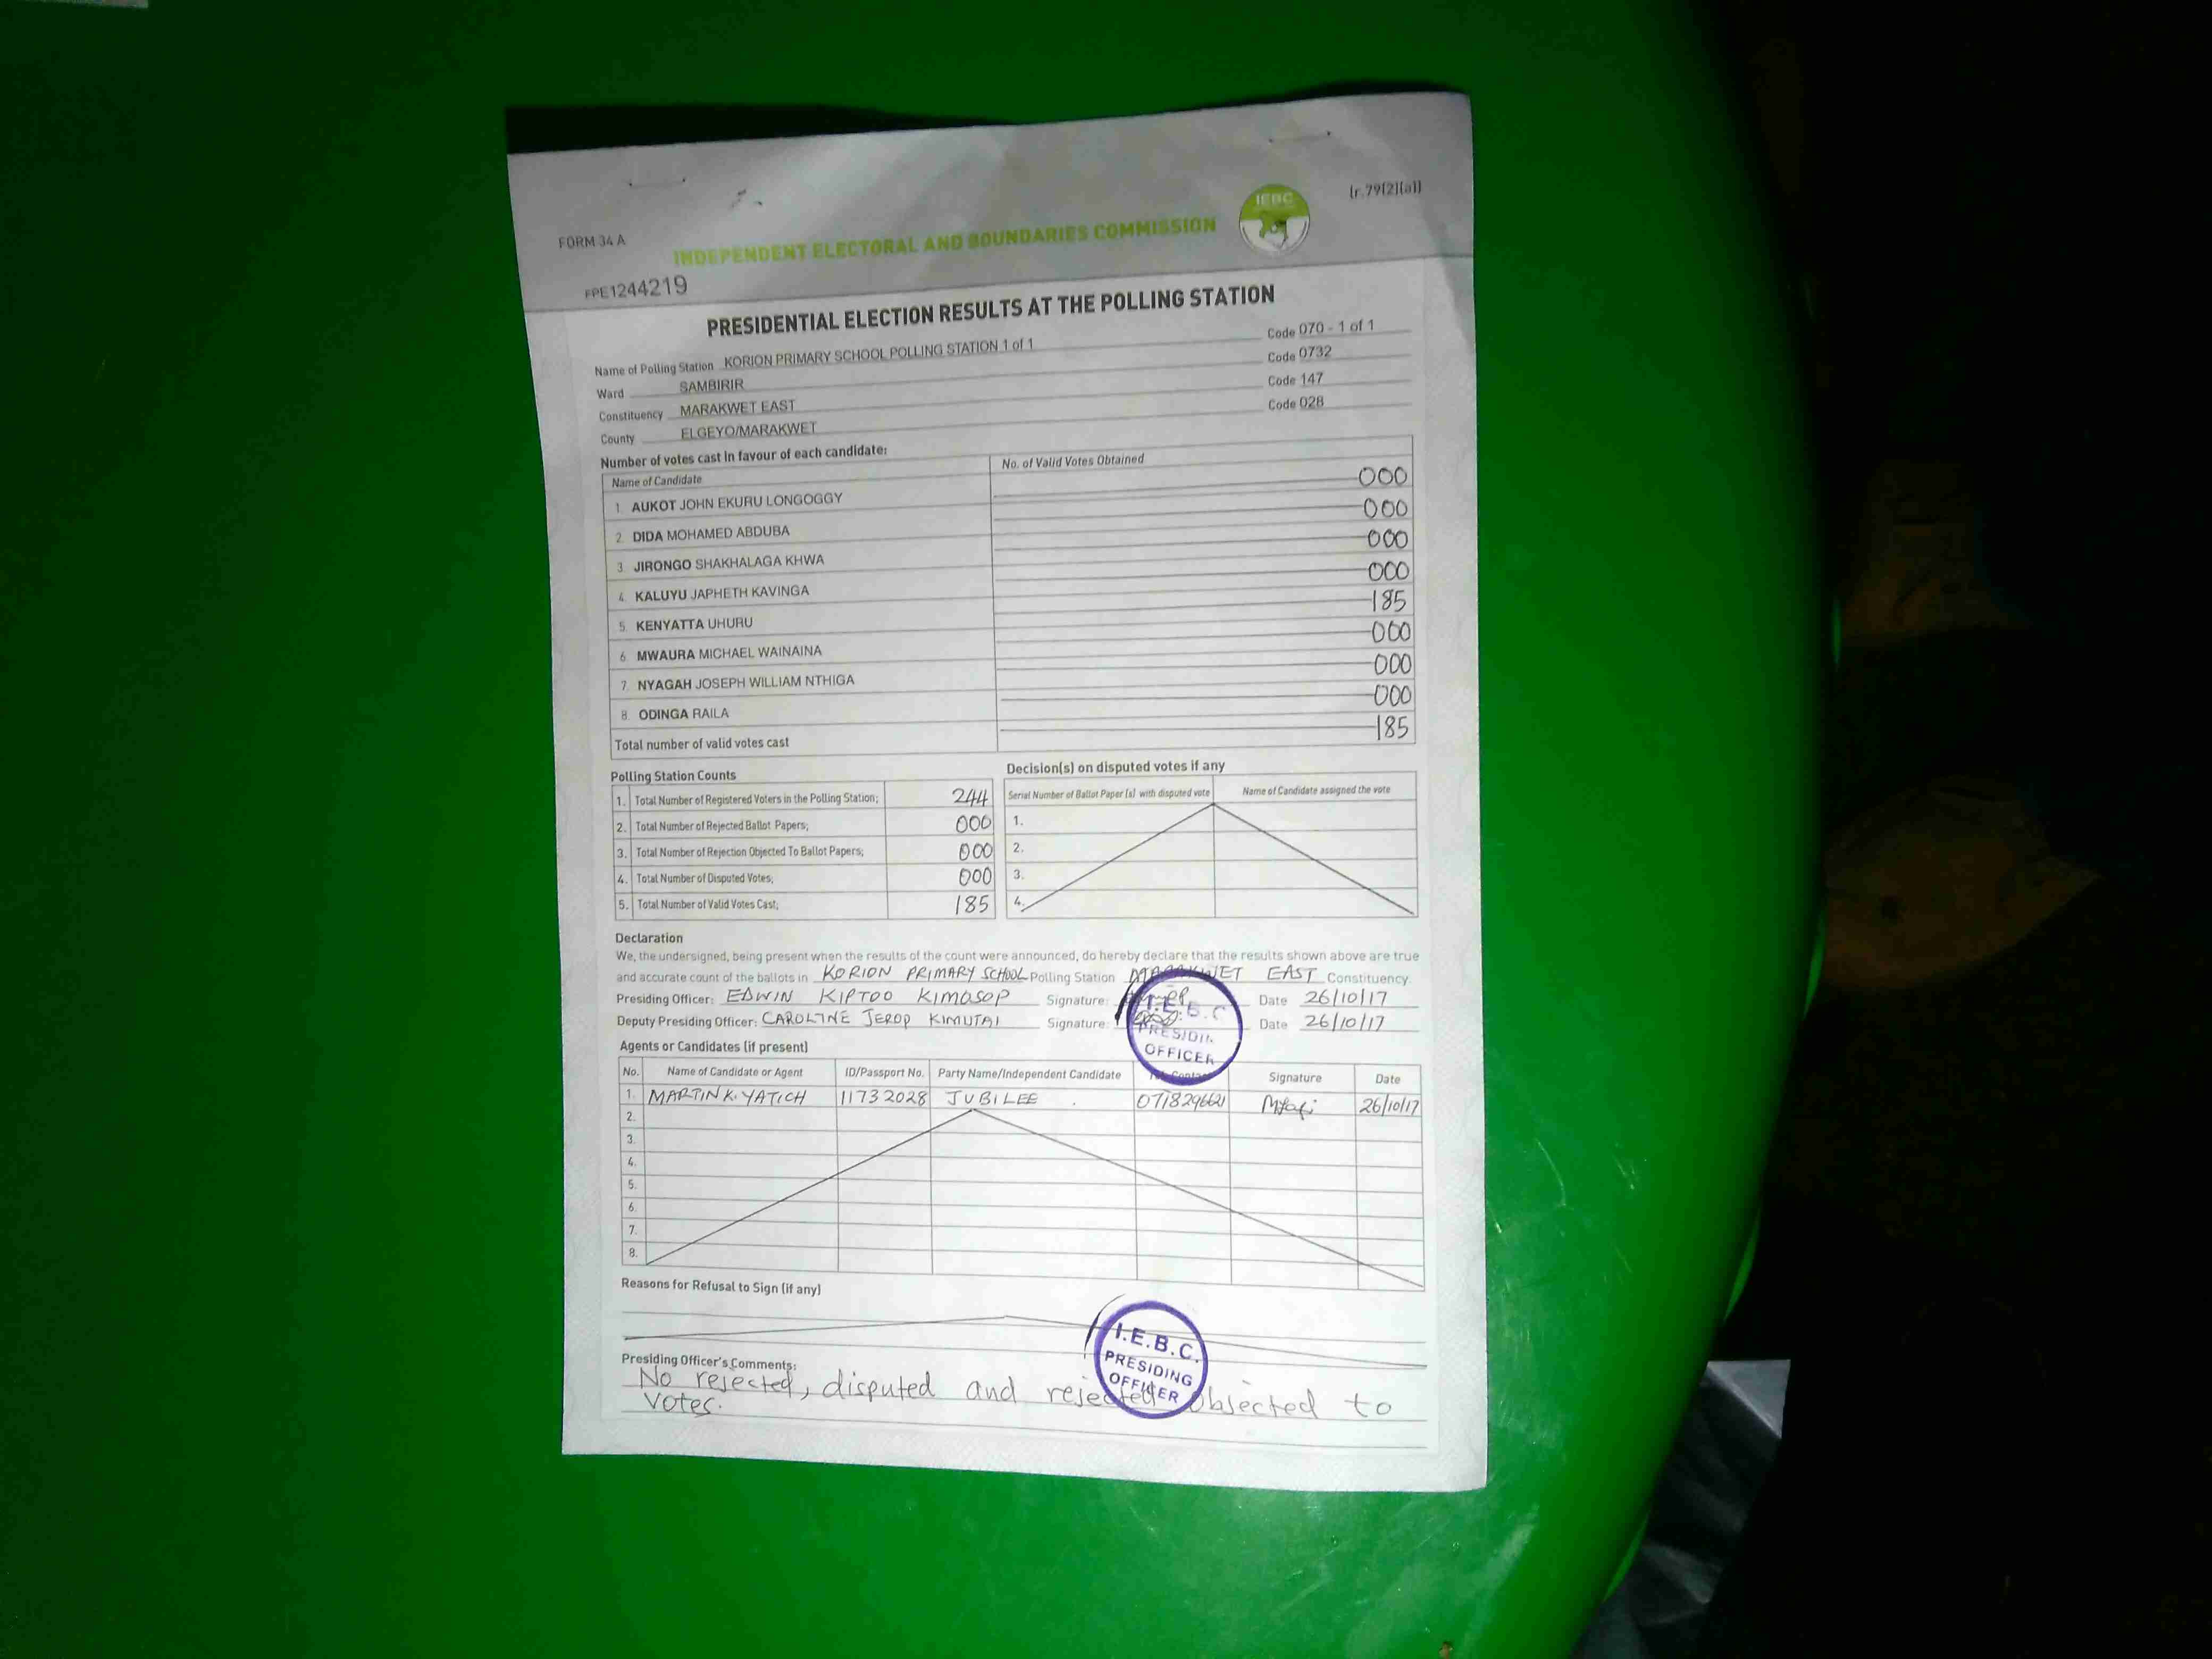 [r.79(2)(a)]
FORM 34 A
INDEPENDENT ELECTORAL AND BOUNDARIES COMMISSION
IEBC
FPE1244219
PRESIDENTIAL ELECTION RESULTS AT THE POLLING STATION
Name of Polling Station KORION PRIMARY SCHOOL POLLING STATION 1 of 1 Code 070 - 1 of 1
Ward SAMBIRIR Code 0732
Constituency MARAKWET EAST Code 147
County ELGEYO/MARAKWET Code 028
Number of votes cast in favour of each candidate:
Name of Candidate No. of Valid Votes Obtained
1. AUKOT JOHN EKURU LONGOGGY 000
2. DIDA MOHAMED ABDUBA 000
3. JIRONGO SHAKHALAGA KHWA 000
4. KALUYU JAPHETH KAVINGA 000
5. KENYATTA UHURU 185
6. MWAURA MICHAEL WAINAINA 000
7. NYAGAH JOSEPH WILLIAM NTHIGA 000
8. ODINGA RAILA 000
Total number of valid votes cast 185
Polling Station Counts
1. Total Number of Registered Voters in the Polling Station; 244
2. Total Number of Rejected Ballot Papers; 000
3. Total Number of Rejection Objected To Ballot Papers; 000
4. Total Number of Disputed Votes; 000
5. Total Number of Valid Votes Cast; 185
Decision(s) on disputed votes if any
Serial Number of Ballot Paper (s) with disputed vote Name of Candidate assigned the vote
1.
2.
3.
4.
Declaration
We, the undersigned, being present when the results of the count were announced, do hereby declare that the results shown above are true
and accurate count of the ballots in KORION PRIMARY SCHOOL Polling Station MARAKWET EAST Constituency.
Presiding Officer: EDWIN KIPTOO KIMOSOP Signature: Date 26/10/17
Deputy Presiding Officer: CAROLINE JEROP KIMUTAI Signature: Date 26/10/17
I.E.B.C
PRESIDIN
OFFICER
Agents or Candidates (if present)
No. Name of Candidate or Agent ID/Passport No. Party Name/Independent Candidate Contact Signature Date
1. MARTIN K. YATICH 11732028 JUBILEE 26/10/17
2.
3.
4.
5.
6.
7.
8.
Reasons for Refusal to Sign (if any)
I.E.B.C.
PRESIDING
OFFICER
Presiding Officer's Comments:
No rejected, disputed and rejected objected to
votes.